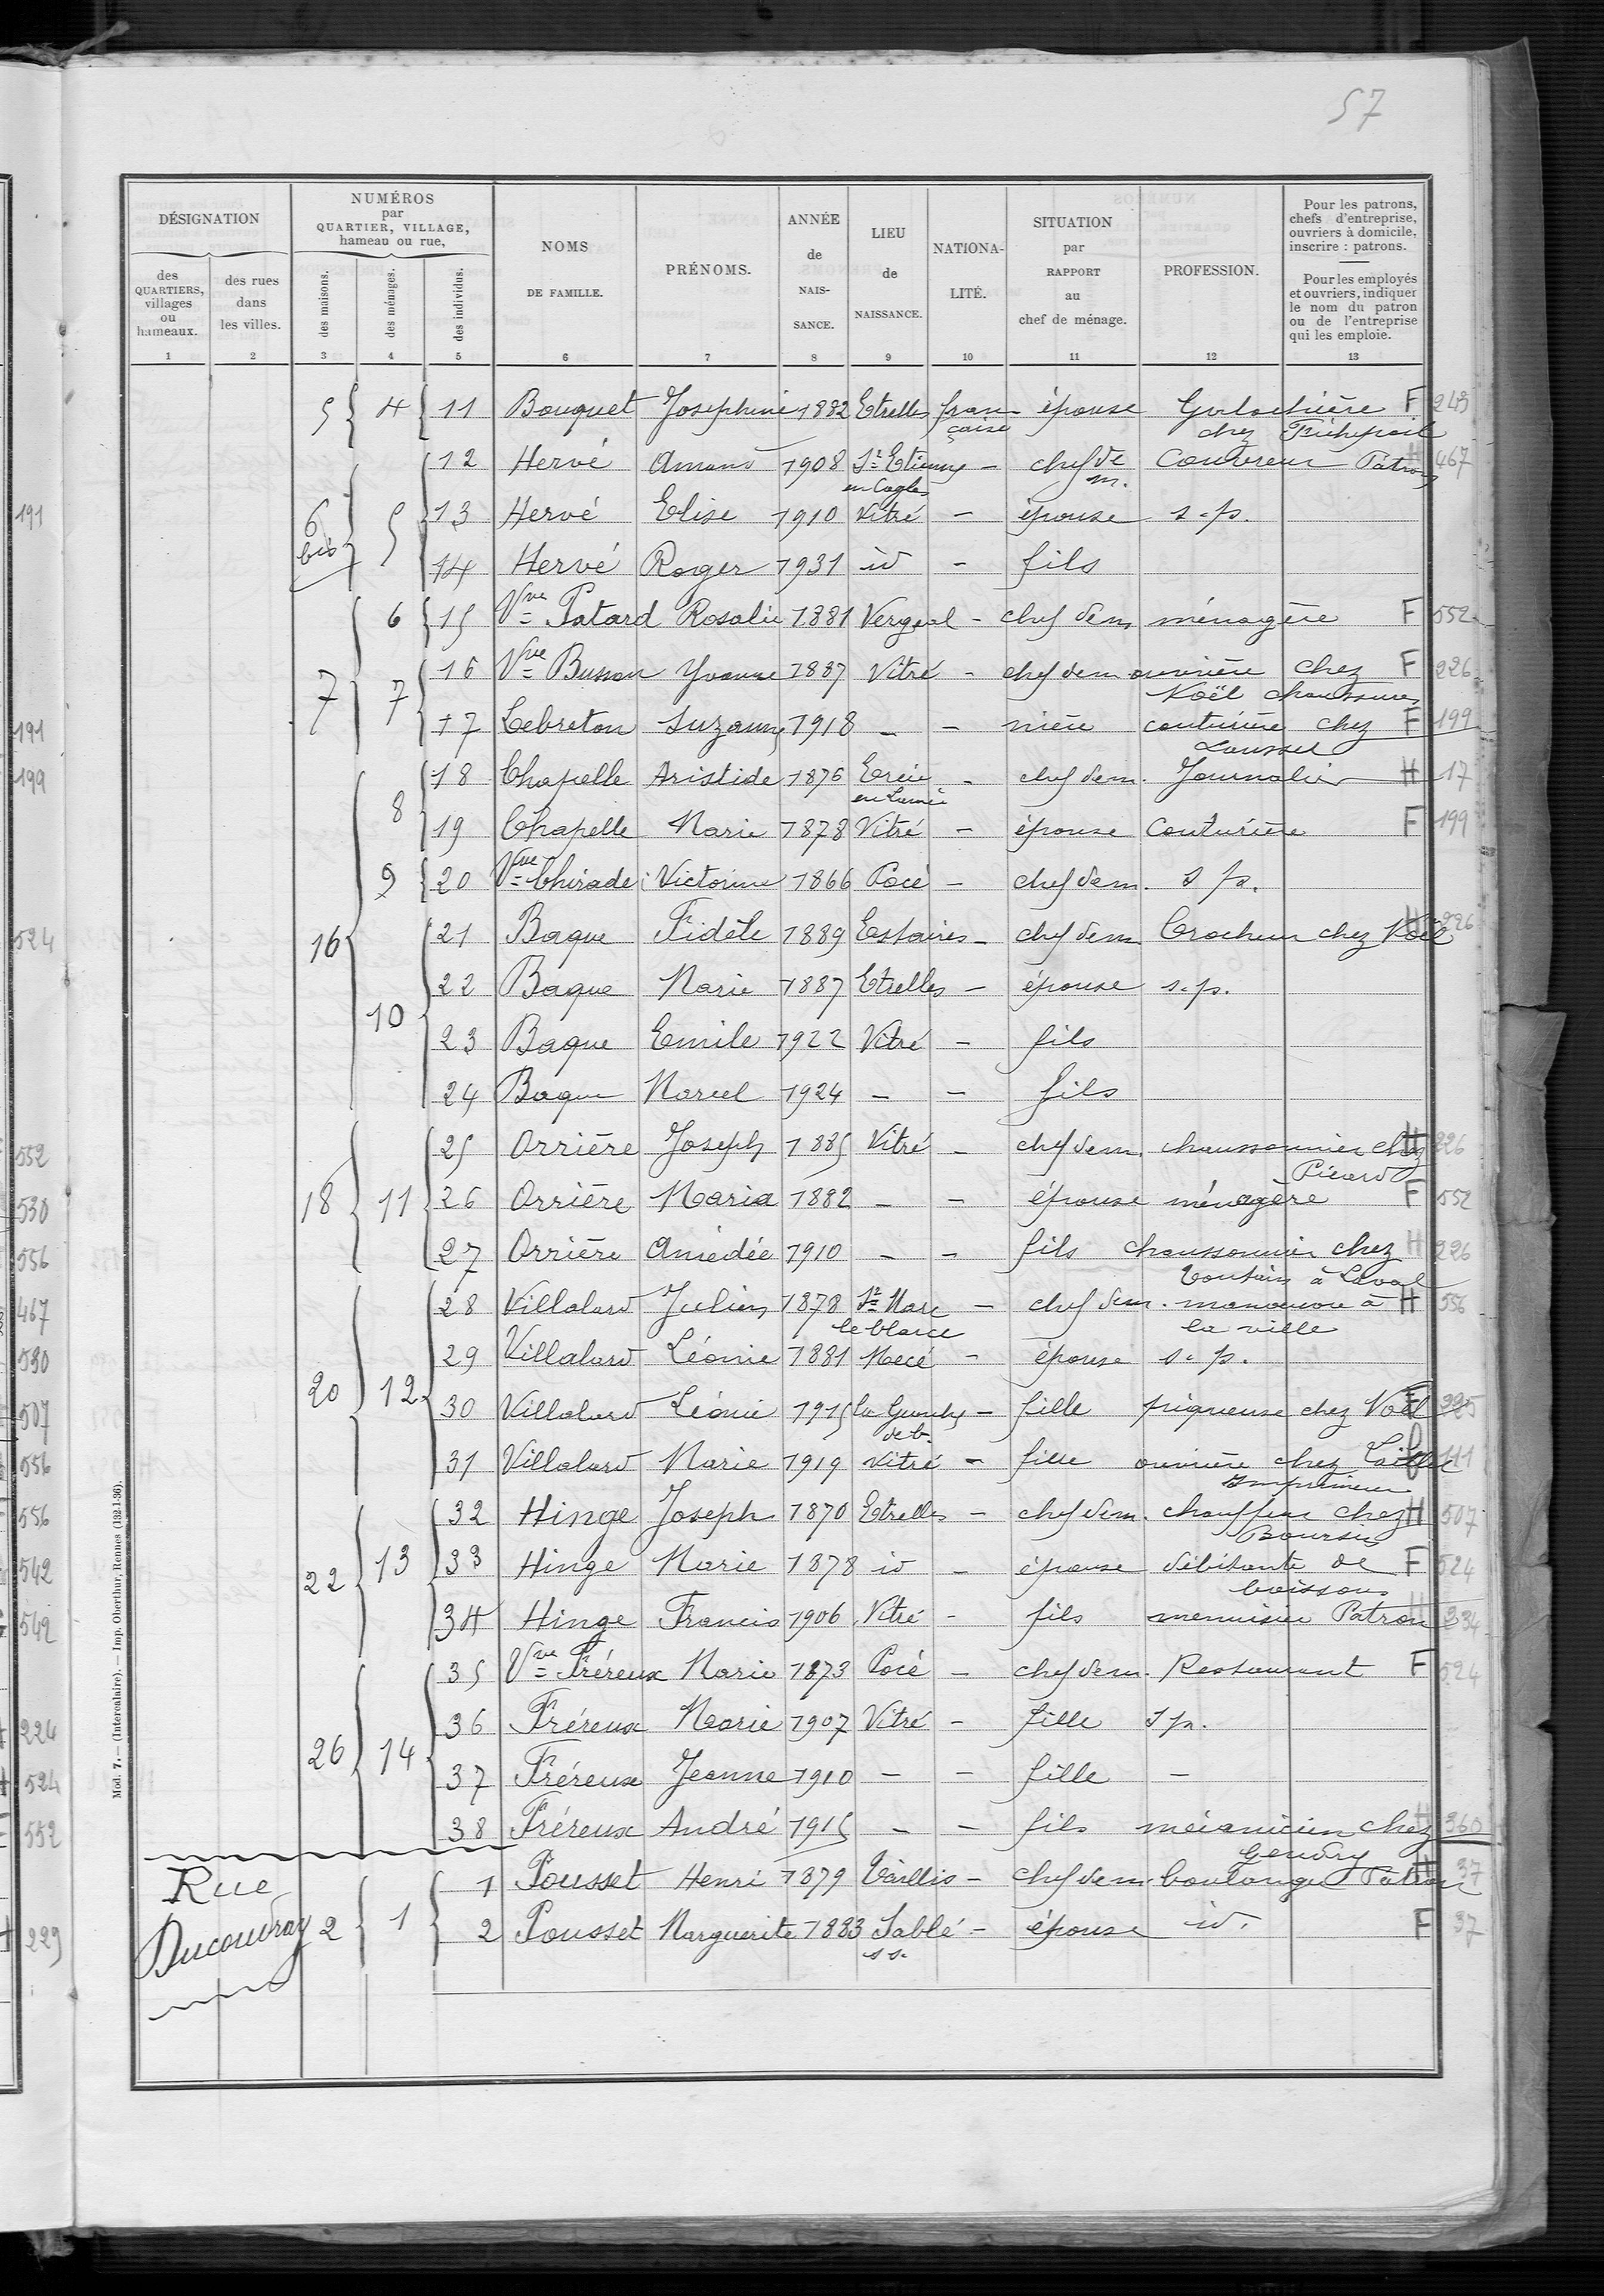 57
DÉSIGNATION
NUMÉROS
par
QUARTIER, VILLAGE,
hameau ou rue,
des QUARTIERS, villages ou hameaux.
des rues dans les villes.
des maisons.
des ménages.
des individus.
NOMS DE FAMILLE.
PRÉNOMS.
ANNÉE de NAIS- SANCE.
LIEU de NAISSANCE.
NATIONA- LITÉ.
SITUATION par RAPPORT au chef de ménage.
PROFESSION.
Pour les patrons, chefs d'entreprise, ouvriers à domicile, inscrire : patrons.
Pour les employés et ouvriers, indiquer le nom du patron ou de l'entreprise qui les emploie.
1 2 3 4 5 6 7 8 9 10 11 12 13
5 4 11 Bouquet Josephine 1882 Etrelles fran çaise épouse chez F 249
12 Hervé Amand 1908 St Etienne en Cogles - chef de m. Couvreur Patron 467
6 bis 5 13 Hervé Elise 1910 Vitré - épouse s.p.
14 Hervé Roger 1931 id - fils
6 15 Vve Patard Rosalie 1881 Vergeal - chef de m ménagère F 552
7 7 16 Vve Busson Yvonne 1887 Vitré - chef de m ouvrière chez Noël chaussures F 226
17 Lebreton Suzanne 1918 - - nièce couturière chez F 199
8 18 Chapelle Aristide 1876 - chef de m. Journalier H 17
19 Chapelle Marie 1878 Vitré - épouse couturière F 199
9 20 Vve Chirade Victorine 1866 Pocé - chef de m. s p.
16 21 Baque Fidèle 1889 Estaires - chef de m Crocheur chez Noël 226
22 Baque Marie 1887 Etrelles - épouse s.p.
10 23 Baque Emile 1922 Vitré - fils
24 Baque Marcel 1924 - - fils
25 Orrière Joseph 1885 Vitré - chef de m. chaussonnier chez Picard H 226
18 11 26 Orrière Maria 1882 - - épouse ménagère F 552
27 Orrière Amédée 1910 - - fils chaussonnier chez à Laval H 226
28 Villalard Julien 1878 St Marc le blanc - chef de m. manoeuvre à la ville H 556
29 Villalard Léonie 1881 Mecé - épouse s.p.
20 12 30 Villalard Léonie 1915 - fille piqueuse chez Noël F 225
31 Villalard Marie 1919 Vitré - fille ouvrière chez imprimeur 111
32 Hinge Joseph 1870 Etrelles - chef de m. chauffeur chez Boursier H 507
22 13 33 Hinge Marie 1878 id - épouse débitante de boissons F 524
34 Hinge Francis 1906 Vitré - fils menuisier Patron H 334
35 Vve Fréreux Marie 1873 Pocé - chef de m. Restaurant F 524
36 Fréreux Marie 1907 Vitré - fille s p.
26 14 37 Fréreux Jeanne 1910 - - fille -
38 Fréreux André 1915 - - fils mécanicien chez Gendry H 360
Rue
Ducouvray 2 1
1 Pousset Henri 1879 Taillis - chef de m boulanger Patron H 37
2 Pousset Marguerite 1883 Sablé s s. - épouse id. F 37
Mod. 7. — (Intercalaire). — Imp. Oberthur, Rennes (132-1-36).
191
191
199
524
552
530
556
467
530
507
556
556
542
542
224
524
552
229